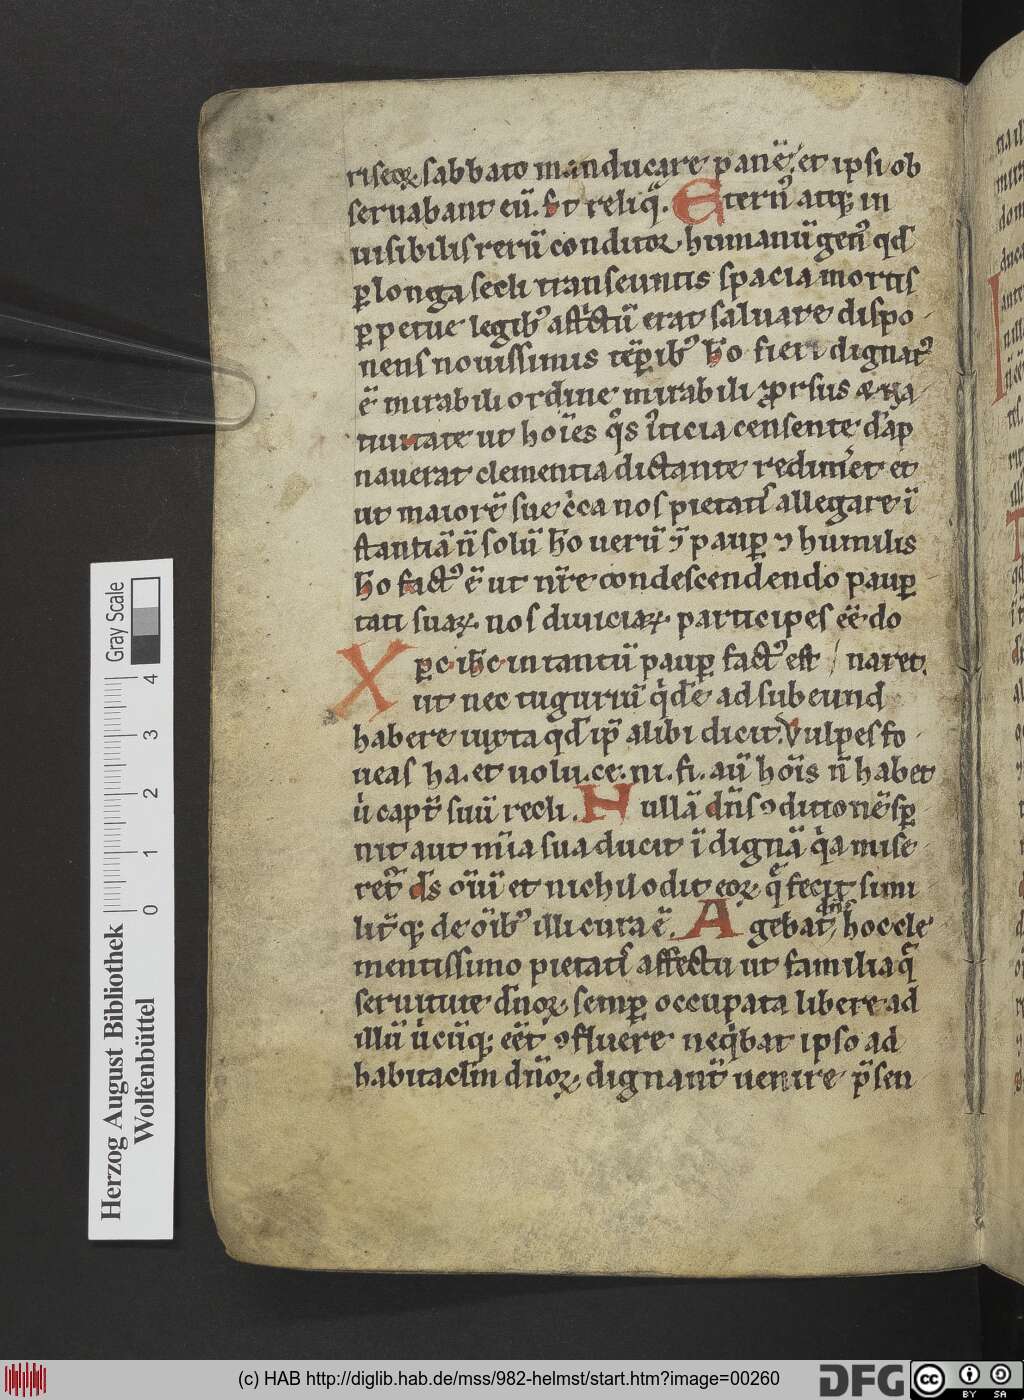 riseoꝝ sabbato manducare panē. et ipsi ob
seruabant eū. Et reliq̄. Etern᷒ atq; in
uisibilis rerū conditoꝛ humanū gen᷒ qd̄
ꝑ longa secli transeuntis spacia mortis
ꝑpetue legib᷒ astrictū erat saluare dispo
nens nouissimis tēꝑib᷒ ho fieri dignat᷒
ē mirabili ordine mirabili ꝓrsus & na
tiuitate ut hoīes qͦs iusticia censente dāp
nauerat clementia dictante redimēt et
ut maiorē sue cͥca nos pietatis allegare ī
stantiā n̄ solū ho uerū ⁊ pauꝑ ⁊ humilis
ho fact᷒ ē ut nr̄e condescendendo pauꝑ
tati suaꝝ nos diuiciaꝝ participes eē do
Xp̄c ih̄c in tantū pauꝑ fact᷒ est / naret.
ut nec tuguriū qͥdē ad subeund
habere iuxta qd̄ ip̄ alibi dicit. Vulpes fo
ueas ha. et uolu. ce. ni. fi. aū hoīs n̄ habet
uͥ capt̄ suū recli. Nullā dn̄s ꝯditionē sꝑ
nit aut nīa sua ducit īdignā qͥa mise
ret᷒ ds̄ oīuī et nichil odit eoꝝ q̄ fecit simi
lit̄q; de oīb᷒ illi cura ē. Agebat dn̄s hoc cle
mentissimo pietatis affectu ut familia q̄
seruitute dn̄oꝝ semꝑ occupata libere ad
illū uͥcūq; eēt ꝯfluere neqͥbat ipso ad
habitaclm̄ dn̄oꝝ dignant̄ uenire p̄sen
Herzog August Bibliothek
Wolfenbüttel
Gray Scale
0 1 2 3 4
(c) HAB http://diglib.hab.de/mss/982-helmst/start.htm?image=00260
DFG
cc
BY SA